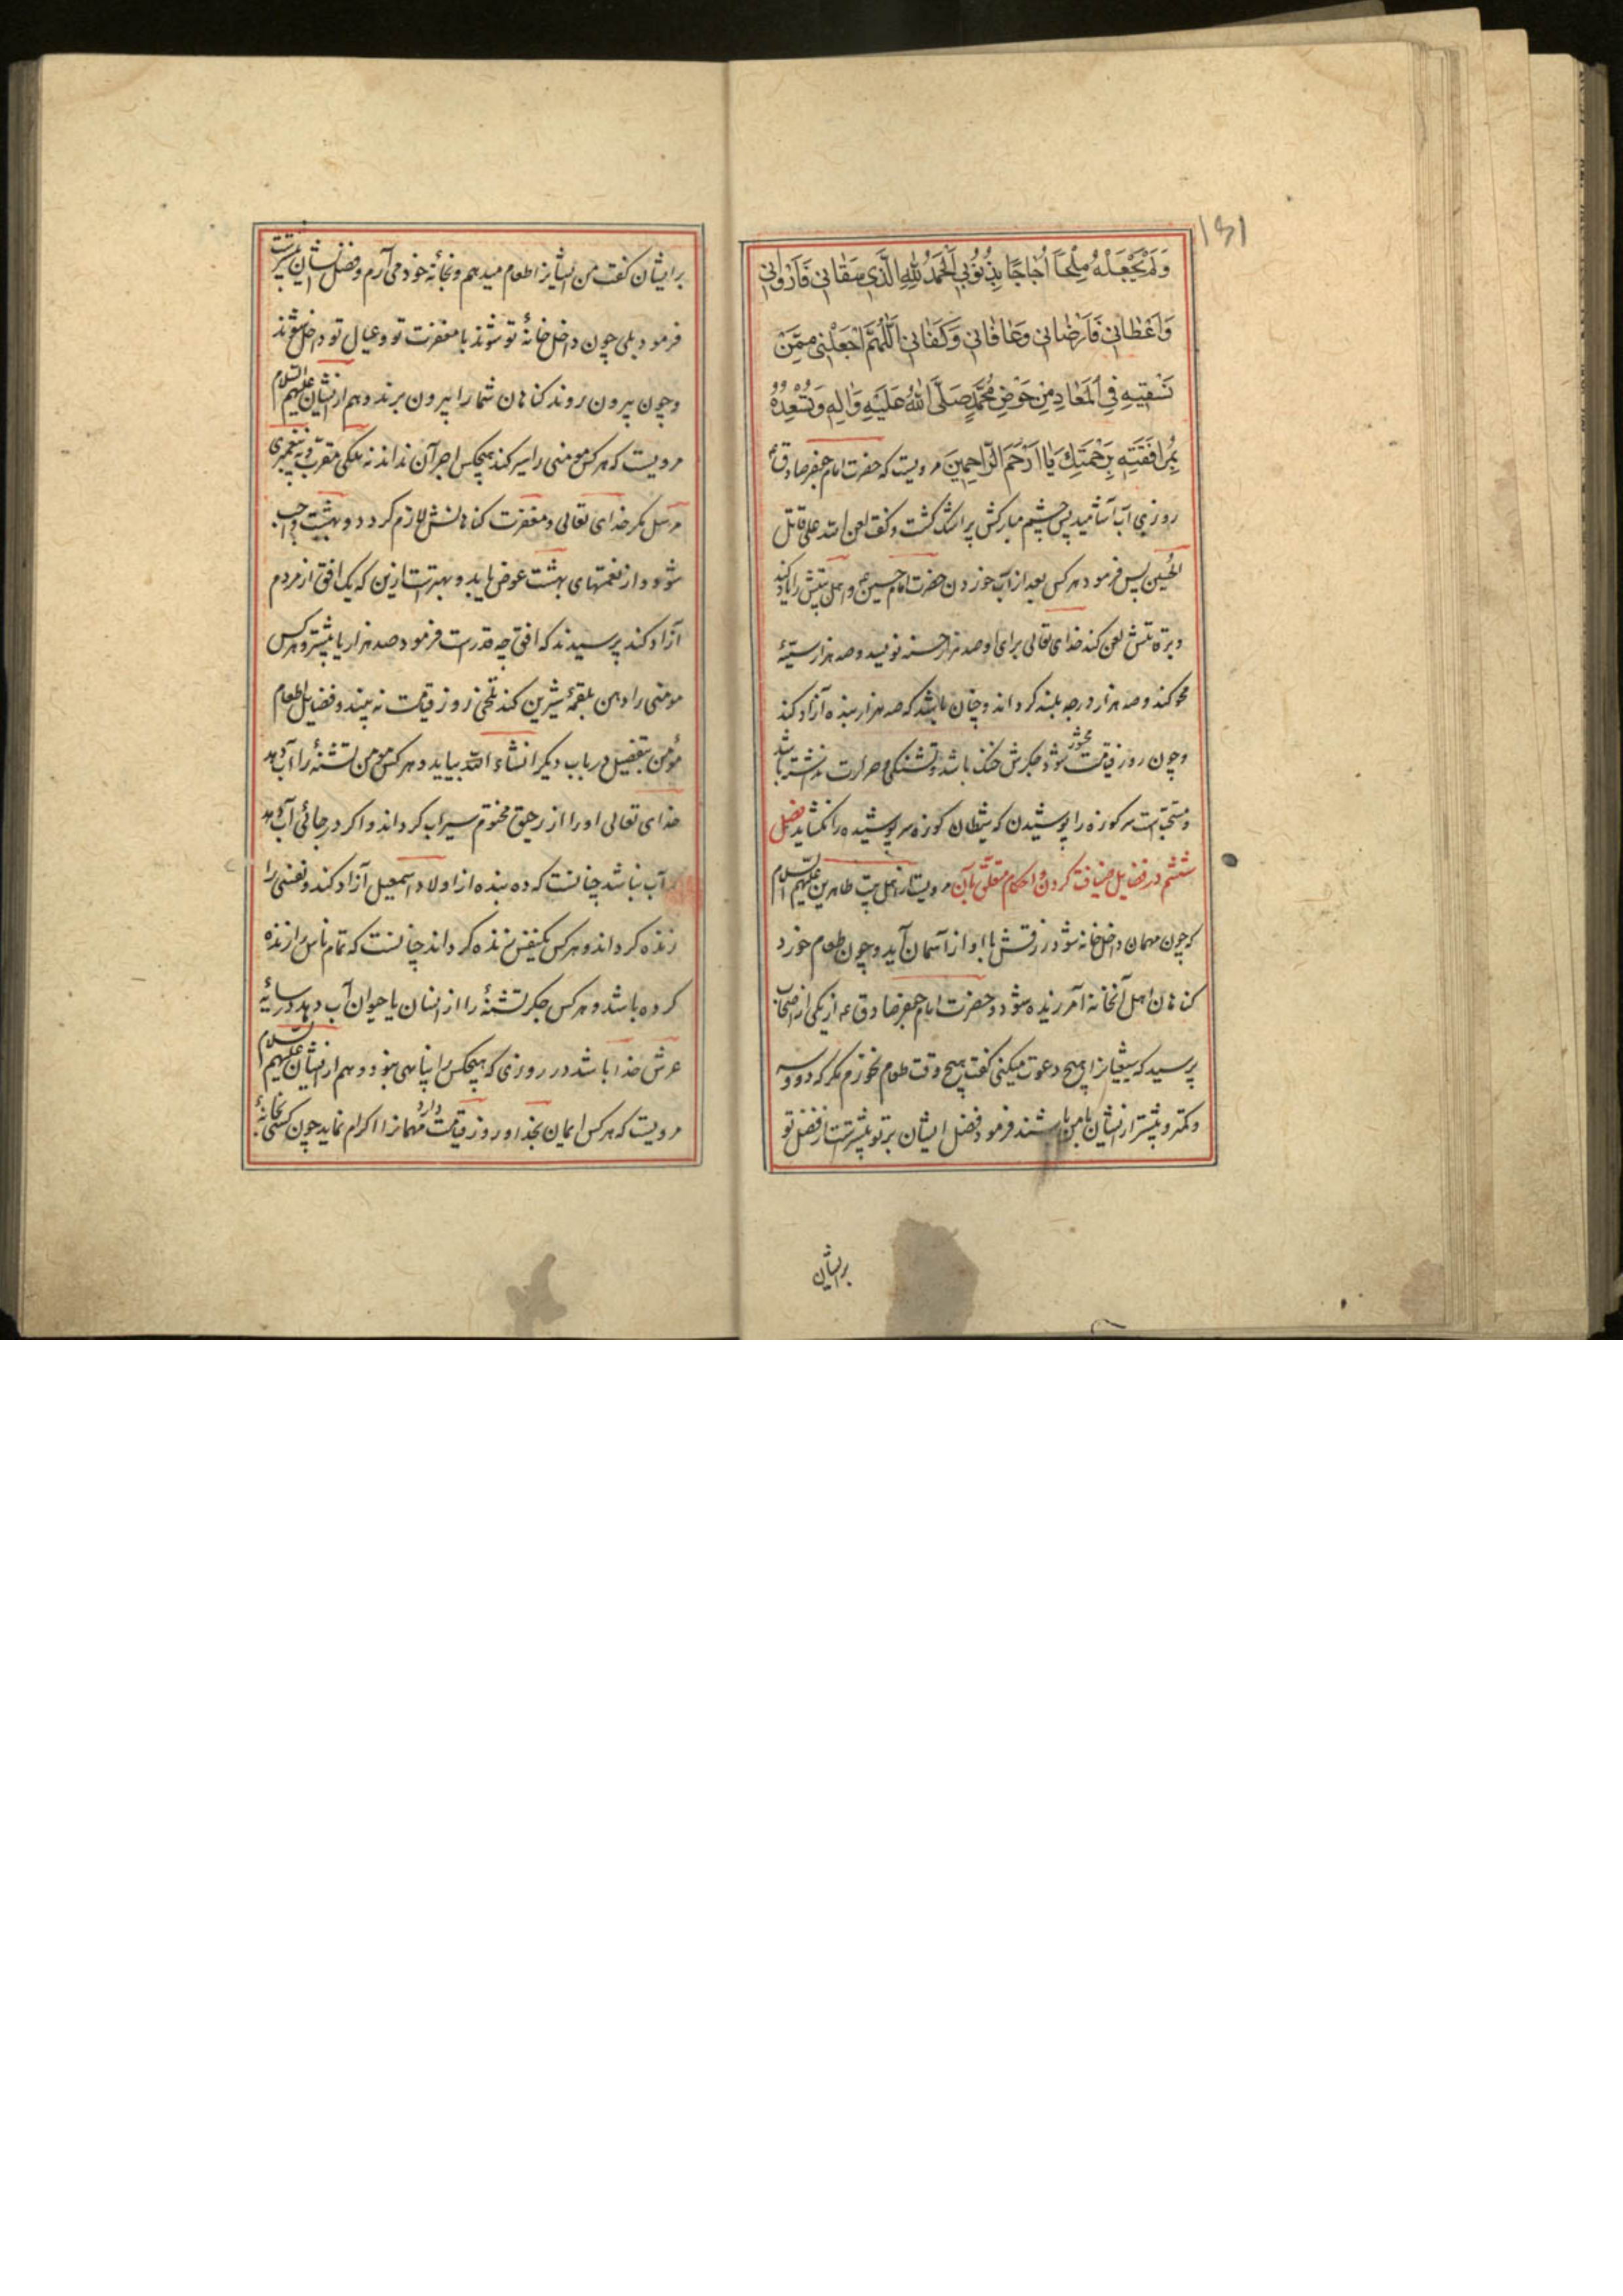 ۱۵۱
وَلَمْ يَجْعَلْهُ مِلْحاً اُجَاجًا بِذُنُوبِي اَلْحَمْدُ لِلّهِ الَّذِي سَقَانِي فَاَرْوَانِي
وَاَعْطَانِي فَاَرْضَانِي وَعَافَانِي وَكَفَانِي اَللّهُمَّ اجْعَلْنِي مِمَّنْ
تَسْقِيهِ فِي الْمَعَادِ مِنْ حَوْضِ مُحَمَّدٍ صَلَّى اللهُ عَلَيْهِ وَالِهِ وَتُسْعِدُهُ
بِمُرَافَقَتِهِ بِرَحْمَتِكَ يَا اَرْحَمَ الرَّاحِمِينَ مرویست که حضرت امام جعفر صادق ع
روزی آب آشامید پس چشم مبارکش پر اشک گشت و گفت لعن الله علی قاتل
الحُسین پس فرمود هر کس بعد از آب خوردن حضرت امام حسین ع و اهل بیتش را یاد کند
و بر قاتلش لعن کند خدای تعالی برای او صد هزار حسنه نویسد و صد هزار سیئه
محو کند و صد هزار درجه بلند گرداند و چنان باشد که صد هزار بنده آزاد کند
و چون روز قیامت محشور شود جگرش خنک باشد و تشنگی و حرارت نداشته باشد
و مستحبست سر کوزه را پوشیدن که شیطان کوزه سر پوشیده را نگشاید فصل
ششم در فضایل ضیافت کردن و احکام متعلق بآن مرویست از اهل بیت طاهرین علیهم السلام
که چون مهمان داخل خانه شود رزقش با او از آسمان آید و چون طعام خورد
گناهان اهل آنخانه آمرزیده شود و حضرت امام جعفر صادق ع از یکی از اصحاب
پرسید که شیعیانرا هیچ دعوت میکنی گفت هیچ وقت طعام نخورم مگر که دو و سه
و کمتر و بیشتر از ایشان با من باشند فرمود فضل ایشان بر تو بیشترست از فضل تو
بر ایشان
بر ایشان گفت من ایشانرا طعام میدهم و بخانه خود می آرم و فضل ایشان بیشترست
فرمود بلی چون داخل خانهٔ تو شوند با مغفرت تو و عیال تو داخل شوند
و چون بیرون روند گناهان شما را بیرون برند و هم از ایشان علیهم السلام
مرویست که هر کس مؤمنی را سیر کند هیچکس اجر آن نداند نه ملکی مقرّب و نه پیغمبری
مرسل مگر خدای تعالی و مغفرت گناهانش لازم گردد و بهشت واجب
شود و از نعمتهای بهشت عوض یابد و بهترست ازین که یک افق از مردم
آزاد کند پرسیدند که افق چه قدرست فرمود صد هزار یا بیشتر و هر کس
مومنی را دهن بلقمهٔ شیرین کند تلخی روز قیامت نه بیند و فضایل اطعام
مؤمن بتفصیل در باب دیگر انشاء الله بیاید و هر کس مومن تشنهٔ را آب دهد
خدای تعالی او را از رحیق مختوم سیراب گرداند و اگر در جائی آب دهد
که آب نباشد چنانست که ده بنده از اولاد اسمعیل آزاد کند و نفسی را
زنده گرداند و هر کس یکنفس زنده گرداند چنانست که تمام ناس را زنده
کرده باشد و هر کس جگر تشنهٔ را از انسان یا حیوان آب دهد در سایهٔ
عرش خدا باشد در روزی که هیچکس را پناهی نبود و هم از ایشان علیهم السلام
مرویست که هر کس ایمان بخدا و روز قیامت دارد مهمانرا اکرام نماید چون کسی بخانهٔ